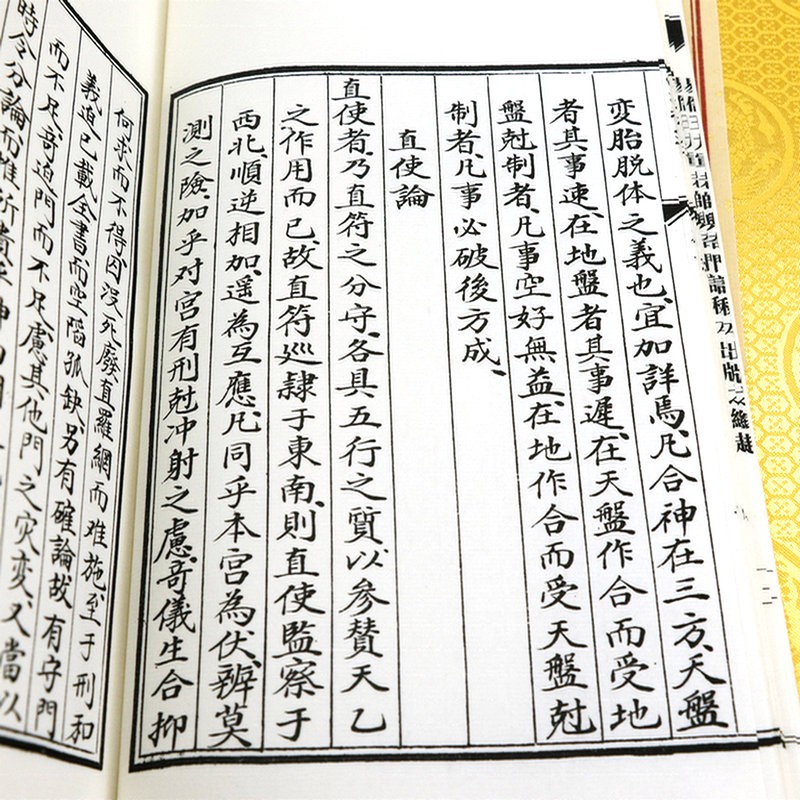 变胎脱体之義也、宜加詳焉、凡合神在三方、天盤
者其事速、在地盤者其事遲、在天盤作合而受地
盤尅制者、凡事空好無益、在地作合而受天盤尅
制者、凡事必破後方成、
直使論
直使者、乃直符之分守、各具五行之質、以參賛天乙
之作用而已、故直符巡隷于東南、則直使監察于
西北、順逆相加、遥為互應、凡同乎本宮為伏、辨莫
測之險、加乎对宮有刑尅冲射之慮、奇儀生合抑
何求而不得、因没死廢直羅網而难施、至于刑和
義迫已載全書、而空陷孤缺、另有確論、故有守門
而不足、奇迫門而不足慮、其他門之灾变、又當以
時令分論、而難所